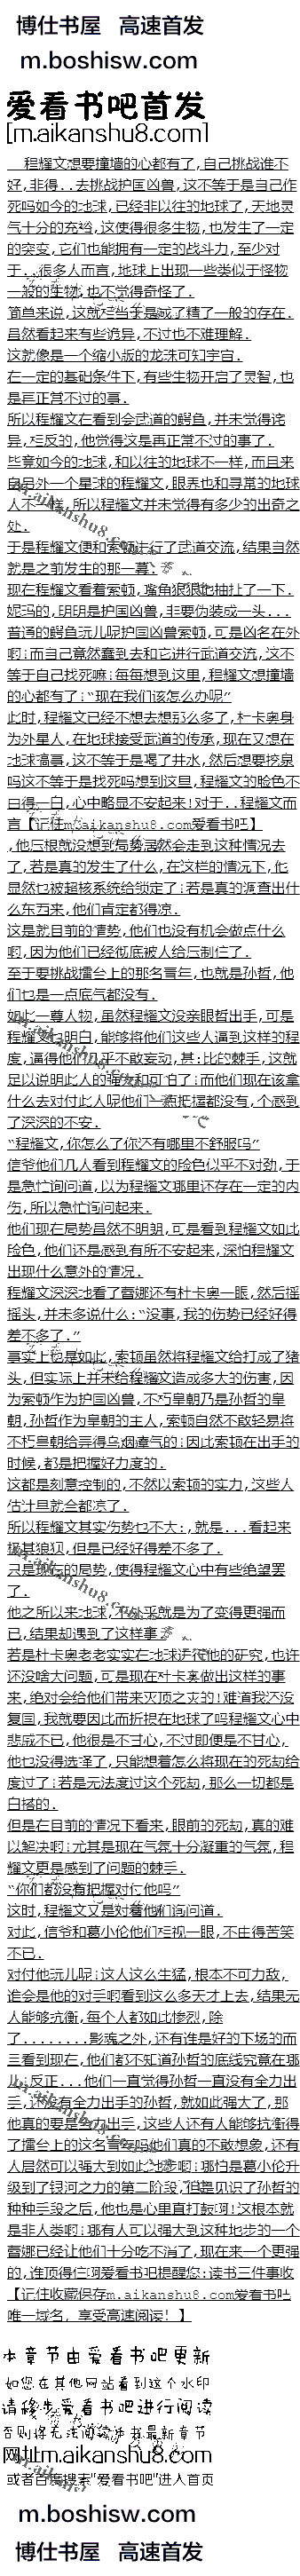 博仕书屋 高速首发
m.boshisw.com
爱看书吧首发
[m.aikanshu8.com]
程耀文想要撞墙的心都有了,自己挑战谁不
好,非得..去挑战护国凶兽,这不等于是自己作
死吗如今的地球,已经非以往的地球了,天地灵
气十分的充裕,这使得很多生物,也发生了一定
的突变,它们也能拥有一定的战斗力,至少对
于..很多人而言,地球上出现一些类似于怪物
一般的生物,也不觉得奇怪了.
简单来说,这就相当于是成了精了一般的存在.
虽然看起来有些诡异,不过也不难理解.
这就像是一个缩小版的龙珠可知宇宙.
在一定的基础条件下,有些生物开启了灵智,也
是再正常不过的事.
所以程耀文在看到会武道的鳄鱼,并未觉得诧
异,相反的,他觉得这是再正常不过的事了.
毕竟如今的地球,和以往的地球不一样,而且来
自另外一个星球的程耀文,眼界也和寻常的地球
人不一样,所以程耀文并未觉得有多少的出奇之
处.
于是程耀文便和索顿进行了武道交流,结果当然
就是之前发生的那一幕.
现在程耀文看着索顿,嘴角狠狠地抽扯了一下.
妮玛的,明明是护国凶兽,非要伪装成一头...
普通的鳄鱼玩儿呢护国凶兽索顿,可是凶名在外
啊!而自己竟然蠢到去和它进行武道交流,这不
等于自己找死嘛!每每想到这里,程耀文想撞墙
的心都有了!“现在我们该怎么办呢”
此时,程耀文已经不想去想那么多了,杜卡奥身
为外星人,在地球接受武道的传承,现在又想在
地球搞事,这不等于是喝了井水,然后想要挖泉
吗这不等于是找死吗想到这里,程耀文的脸色不
由得一白,心中略显不安起来!对于..程耀文而
言【记住m.aikanshu8.com爱看书吧】
,他压根就没想到局势居然会走到这种情况去
了,若是真的发生了什么,在这样的情况下,他
显然也被超核系统给锁定了!若是真的调查出什
么东西来,他们肯定都得凉.
这是就目前的情势,他们也没有机会做点什么
啊,因为他们已经彻底被人给压制住了.
至于要挑战擂台上的那名青年,也就是孙哲,他
们也是一点底气都没有.
如此一尊人物,虽然程耀文没亲眼哲出手,可是
程耀文也明白,能够将他们这些人逼到这样的程
度,逼得他们几乎不敢妄动,甚!比的棘手,这就
足以说明此人的强大和可怕了!而他们现在该拿
什么去对付此人呢他们一点把握都没有,个感到
了深深的不安.
“程耀文,你怎么了你还有哪里不舒服吗”
信爷他们几人看到程耀文的脸色似乎不对劲,于
是急忙询问道,以为程耀文哪里还存在一定的内
伤,所以急忙询问起来.
他们现在局势虽然不明朗,可是看到程耀文如此
脸色,他们还是感到有所不安起来,深怕程耀文
出现什么意外的情况.
程耀文深深地看了蕾娜还有杜卡奥一眼,然后摇
摇头,并未多说什么:“没事,我的伤势已经好得
差不多了.”
事实上也是如此,索顿虽然将程耀文给打成了猪
头,但实际上并未给程耀文造成多大的伤害,因
为索顿作为护国凶兽,不朽皇朝乃是孙哲的皇
朝,孙哲作为皇朝的主人,索顿自然不敢轻易将
不朽皇朝给弄得乌烟瘴气的!因此索顿在出手的
时候,都是把握好力度的.
这都是刻意控制的,不然以索顿的实力,这些人
估计早就全都凉了.
所以程耀文其实伤势也不大:,就是...看起来
极其狼狈,但是已经好得差不多了.
只是现在的局势,使得程耀文心中有些绝望罢
了.
他之所以来地球,无外乎就是为了变得更强而
已,结果却遇到了这样事
若是杜卡奥老老实实在地球进行他的研究,也许
还没啥大问题,可是现在杜卡奥做出这样的事
来,绝对会给他们带来灭顶之灾的!难道我还没
复国,我就要因此而折损在地球了吗程耀文心中
悲戚不已,他很是不甘心,不过即便是不甘心,
他也没得选择了,只能想着怎么将现在的死劫给
度过了!若是无法度过这个死劫,那么一切都是
白搭的.
但是在目前的情况下看来,眼前的死劫,真的难
以解决啊!尤其是现在气氛十分凝重的气氛,程
耀文更是感到了问题的棘手.
“你们都没有把握对付他吗”
这时,程耀文又是对着他们询问道.
对此,信爷和葛小伦他们相视一眼,不由得苦笑
不已.
对付他玩儿呢!这人这么生猛,根本不可力敌,
谁会是他的对手啊看到这么多天才上去,结果无
人能够抗衡,每个人都如此惨烈,除
了........影魂之外,还有谁是好的下场的而
三看到现在,他们都不知道孙哲的底线究竟在哪
儿,反正...他们一直觉得孙哲一直没有全力出
手,还没有全力出手的孙哲,就如此强大了,那
他真的要是全力出手,这些人还有人能够抗衡得
了擂台上的这名青年吗他们真的不敢想象,还有
人居然可以强大到如此地步啊!哪怕是葛小伦升
级到了银河之力的第二阶段,但是见识了孙哲的
种种手段之后,他也是心里直打鼓啊!这根本就
是非人类啊!哪有人可以强大到这种地步的一个
蕾娜已经让他们十分吃不消了,现在来一个更强
的,谁顶得住啊爱看书吧提醒您:读书三件事收
【记住收藏保存m.aikanshu8.com爱看书吧
唯一域名，享受高速阅读！】
本章节由爱看书吧更新
如您在其他网站看到这个水印
请移步爱看书吧进行阅读
否则将无法阅读本书最新章节
网址m.aikanshu8.com
或者百度搜索“爱看书吧”进入首页
m.boshisw.com
博仕书屋 高速首发